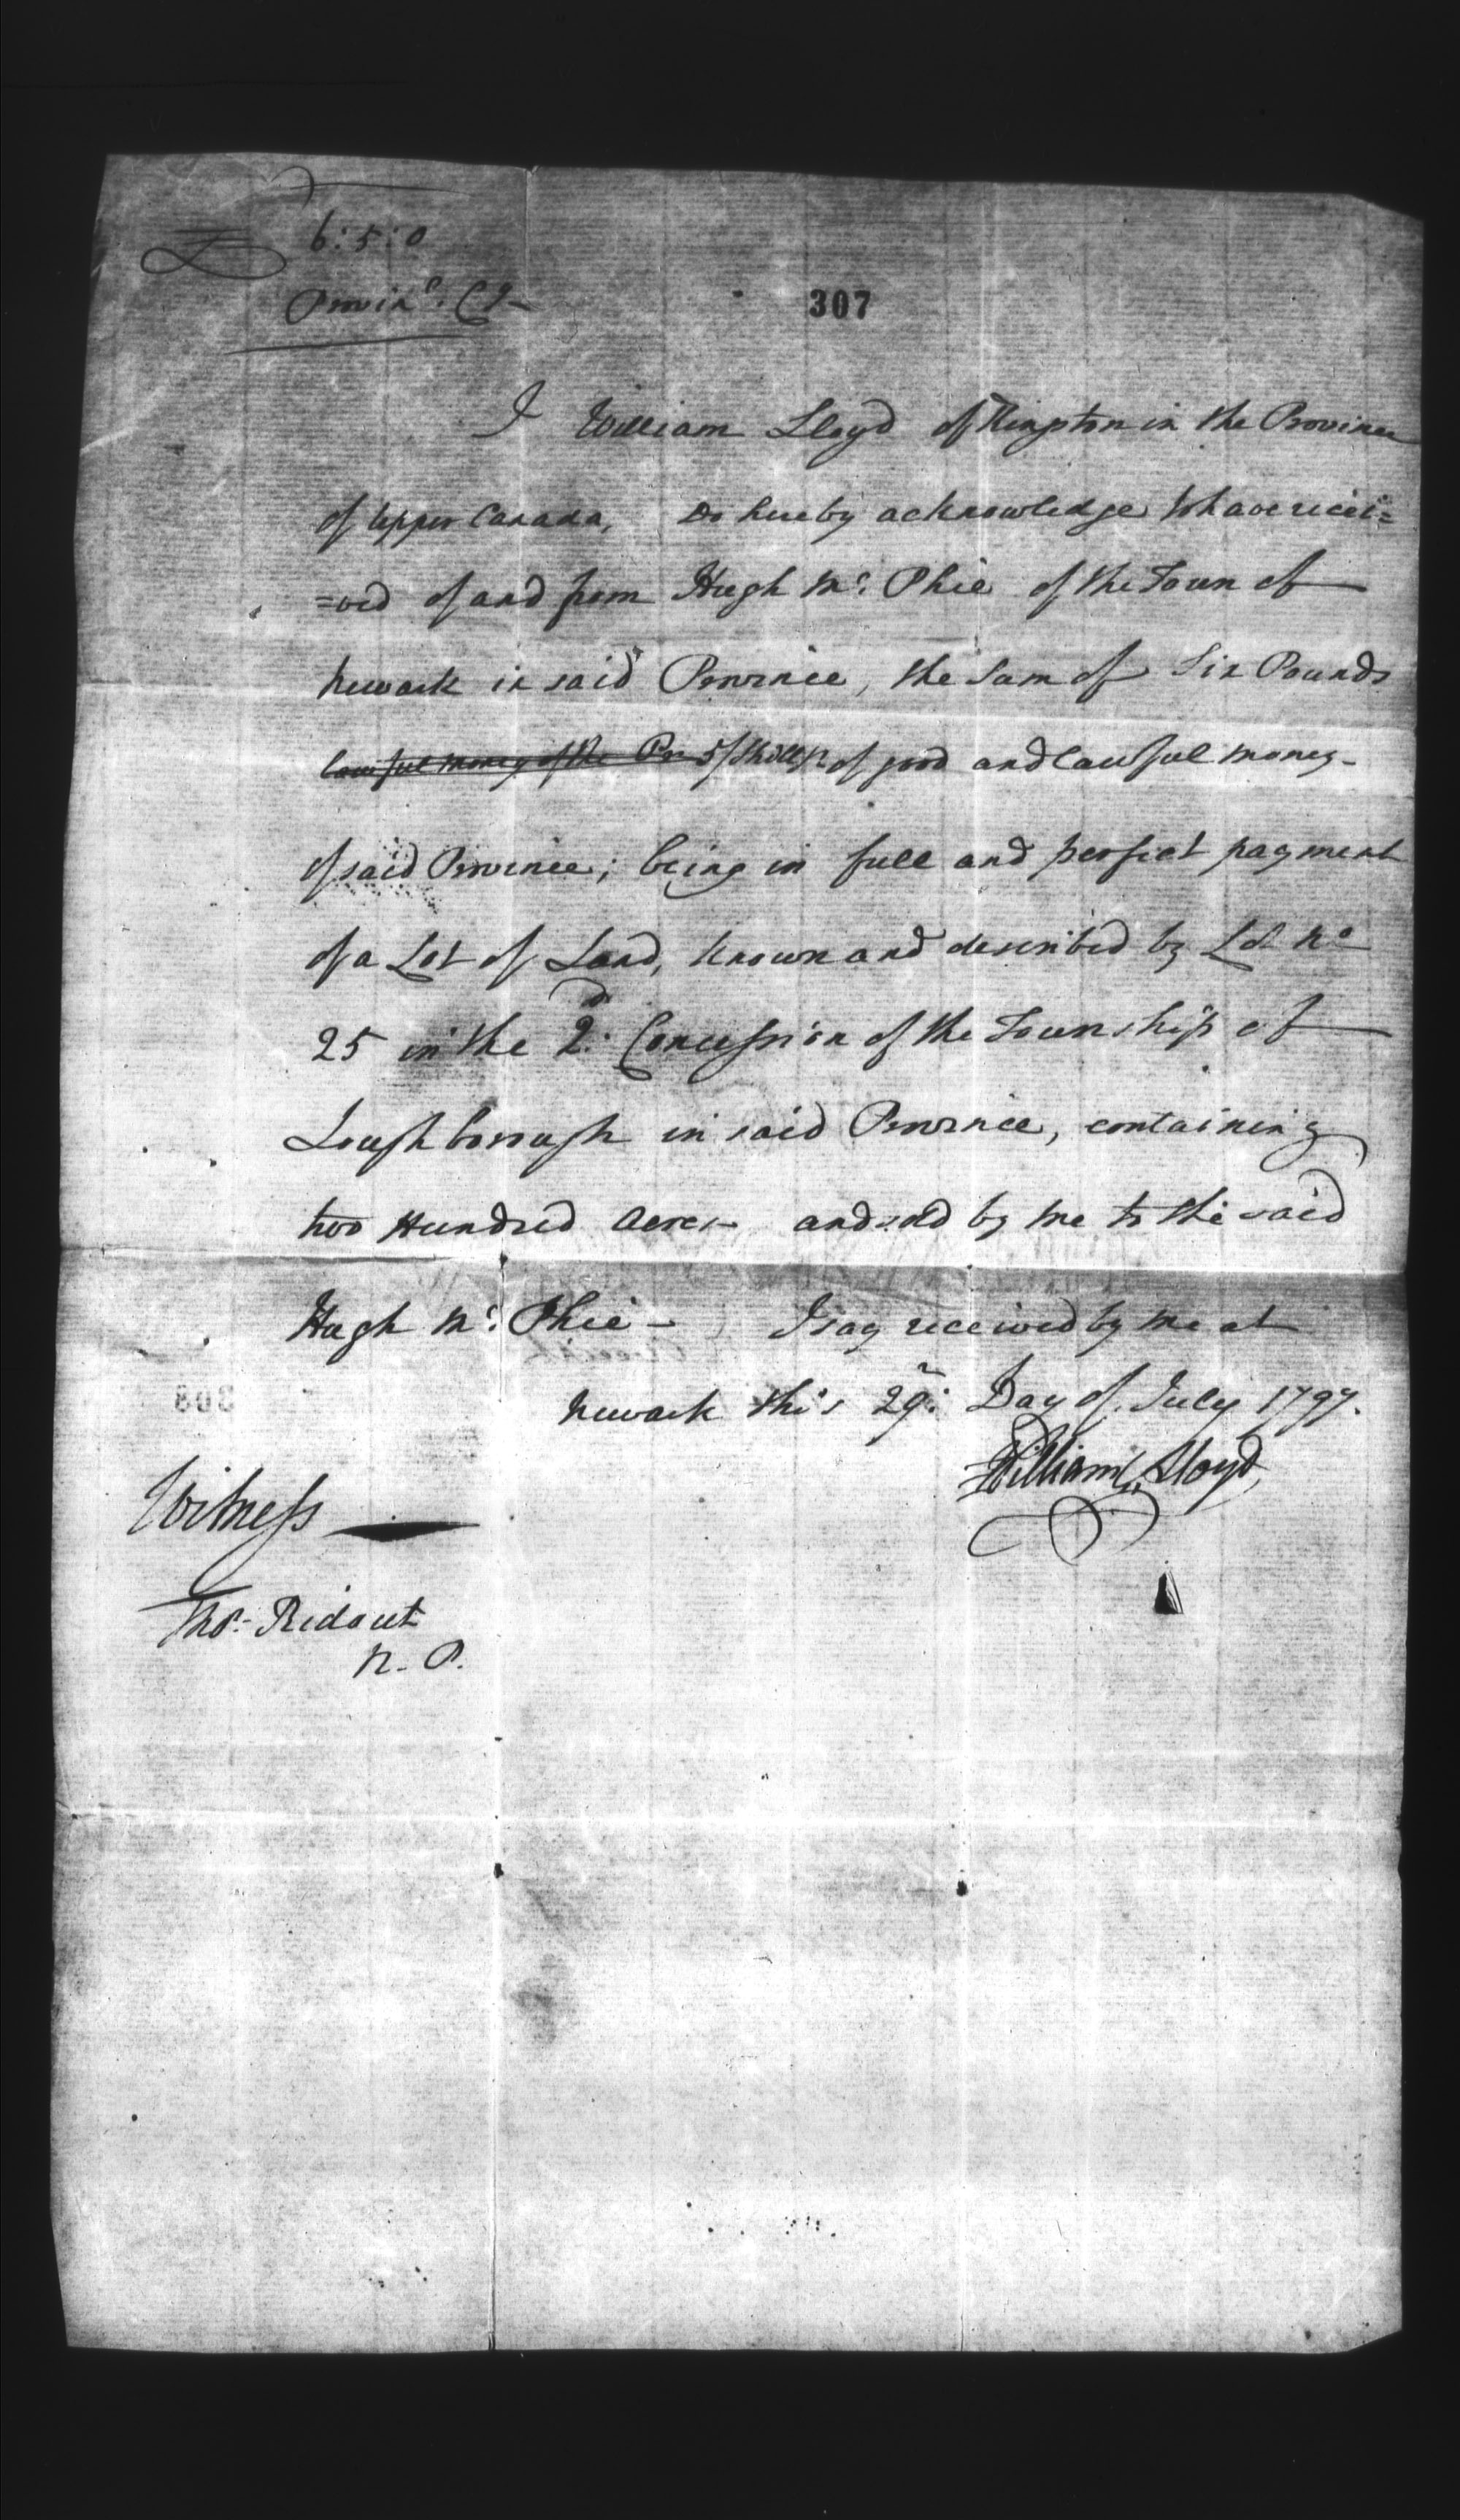 £ 6:5:0
Provin.l Cy
307
I William Lloyd of Kingston in the Province
of Upper Canada, Do hereby acknowledge to have recei=
=ved of and from Hugh Mc. Phie of the Town of
Newark in said Province, the Sum of Six Pounds
lawful money of the Pro 5/ Shillgs of good and lawful money
of said Province; being in full and perfect payment
of a Lot of Land, known and described by Lot No
25 in the 2d. Concession of the Township of
Loughborough in said Province, containing
two Hundred Acres and sold by me to the said
Hugh Mc. Phie — I say received by me at
Newark this 29. Day of July 1797.
William Lloyd
308
Witness
Thos. Ridout
N. P.